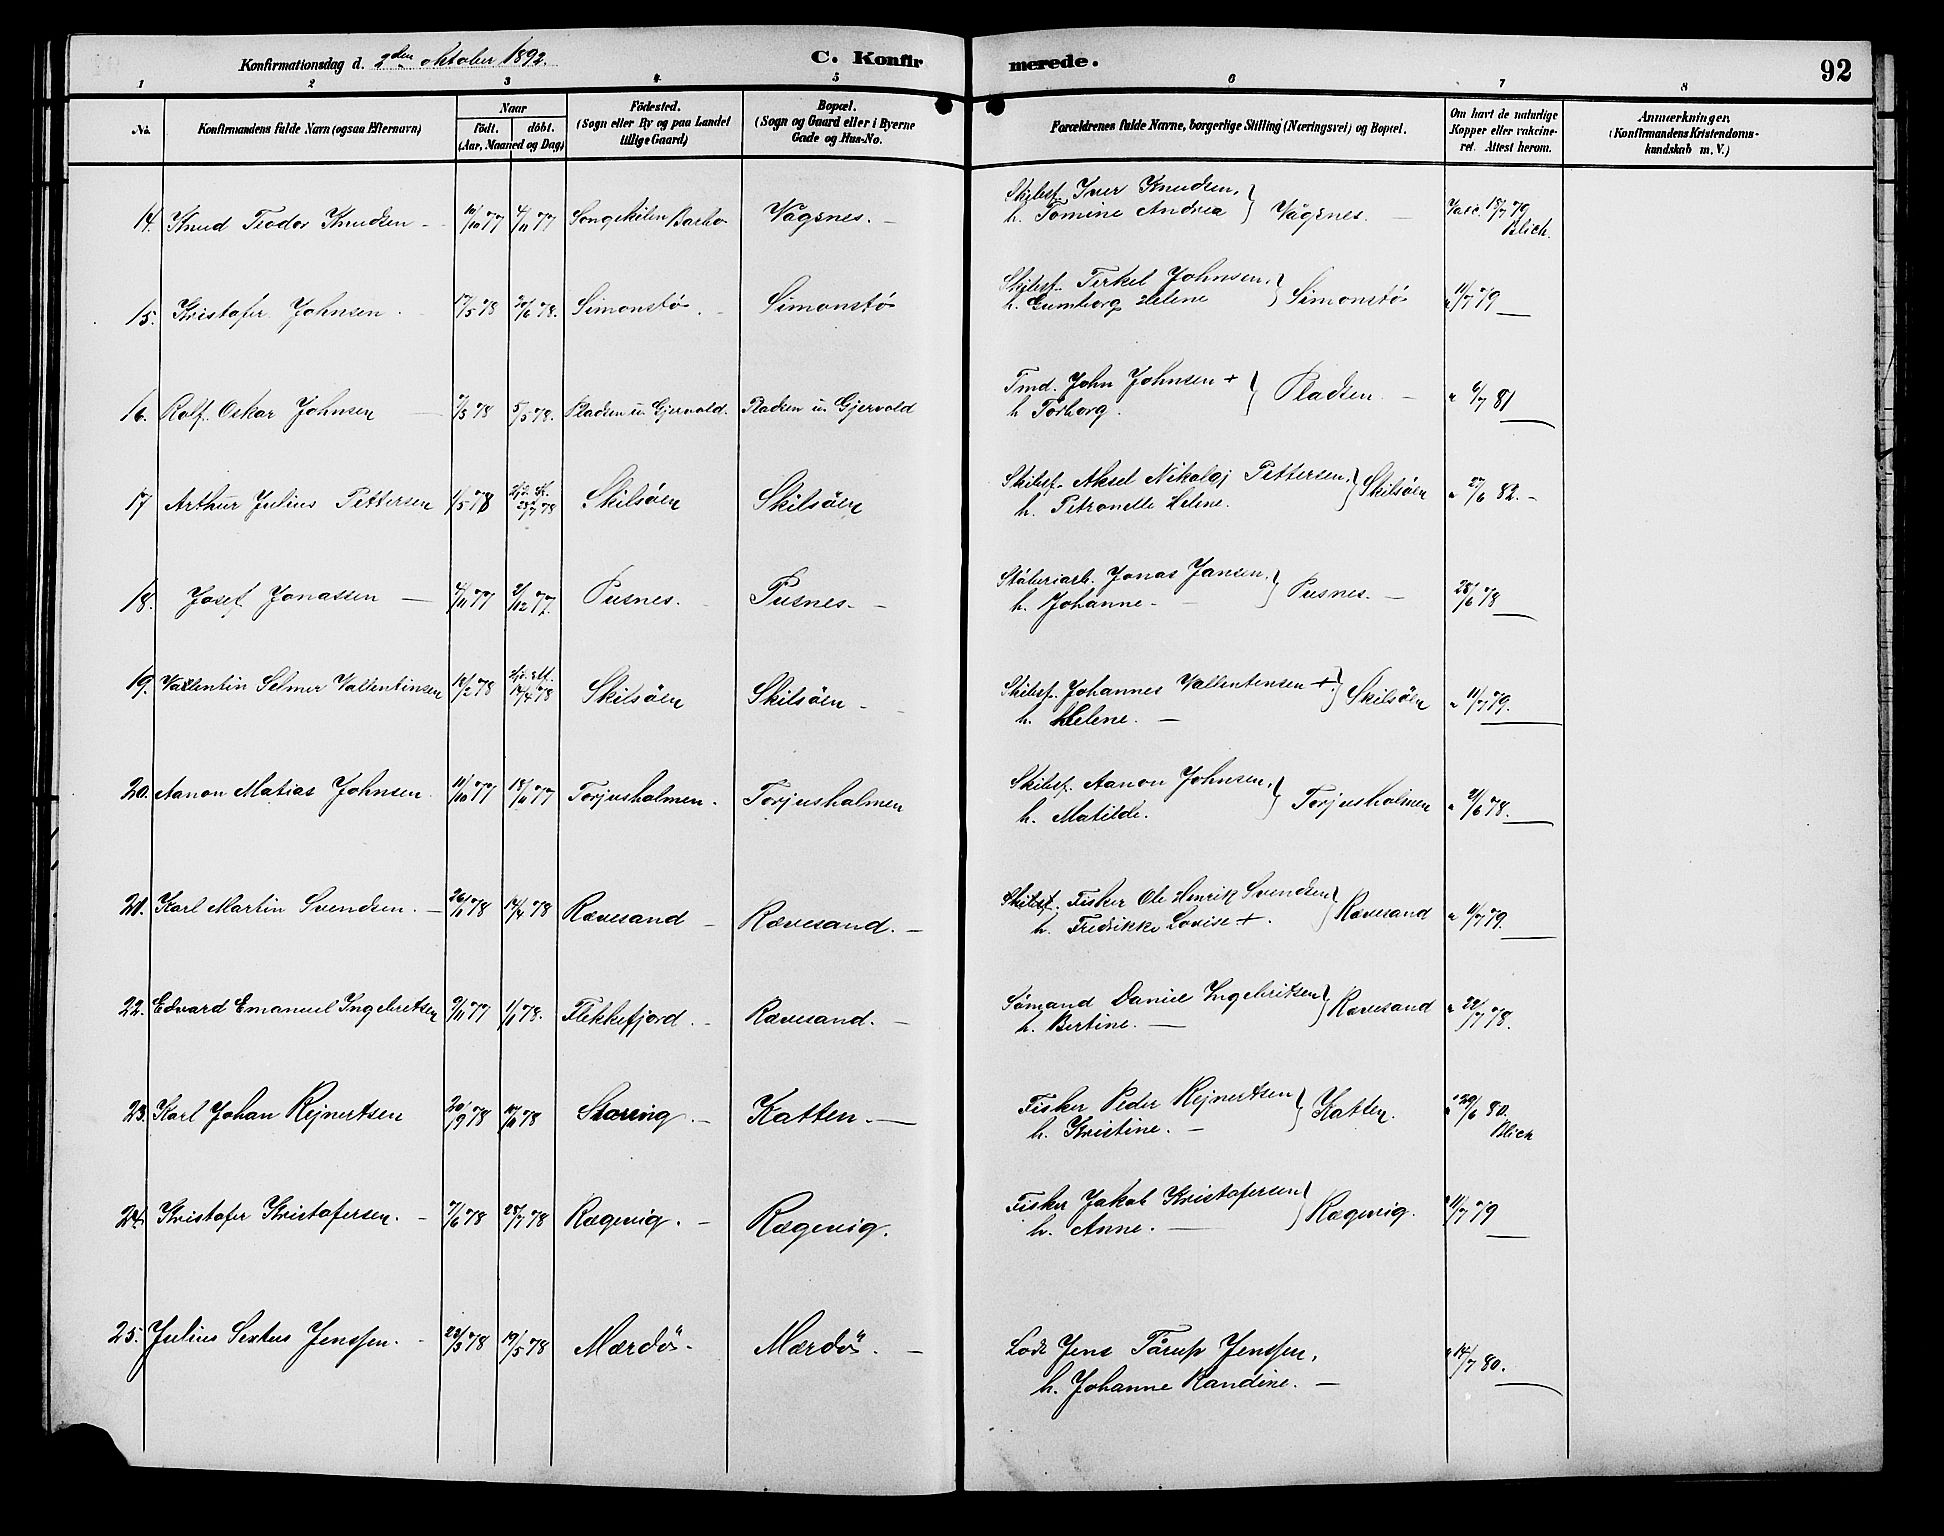 Konfirmationsdag d. 2den oktober 1892. C. Konfirmerede. 92
1 2 3 4 5 6 7 8
No. Konfirmandens fulde Navn (ogsaa Efternavn) Naar födt. döbt. (Aar, Maaned og Dag) Födested. (Sogn eller By og paa Landet tillige Gaard) Bopæl. (Sogn og Gaard eller i Byerne Gade og Hus-No. Forældrenes fulde Navne, borgerlige Stilling (Næringsvei) og Bopæl. Om havt de naturlige Kopper eller vakcineret. Attest herom. Anmærkninger. (Konfirmandens Kristendomskundskab m. V.)
14. Knud Teodor Knudsen 10/10 77 4/11 77 Songekilen Barbo Vågsnes. Skibsf. Iver Knudsen, h. Tomine Andrea } Vågsnes. Vacc. 18/7 79 Blich.
15. Kristofer Johnsen 17/5 78 20/6 78. Simonstö Simonstö Skibsf. Terkel Johnsen, h. Gumborg Helene } Simonstö " 11/7 79
16. Rolf Oskar Johnsen 7/3 78 5/5 78. Pladsen u. Gjervold. Pladsen u. Gjervold Tmd. John Johnsen + h. Torborg. } Pladsen. " 6/7 81
17 Arthur Julius Pettersen 1/5 78 28/7 78 Skilsöen Skilsöen Skibsf. Aksel Nikolaj Pettersen, h. Petronelle Helene. } Skilsöen " 27/6 82.
18. Josef Jonassen 4/11 77 2/12 77. Pusnes. Pusnes. Stöberiarb. Jonas Jansen, h. Johanne. } Pusnes. 28/6 78
19. Vallentin Selmer Vallentinsen 18/2 78 17/4 78 Skilsöen Skilsöen Skibsf. Johannes Vallentensen +. h. Helene. } Skilsöen " 11/7 79.
20. Aanon Matias Johnsen 11/10 77 18/11 77 Torjusholmen. Torjusholmen Skibsf. Aanon Johnsen, h. Matilde. } Torjusholmen " 21/6 78.
21. Karl Martin Svendsen. 26/1 78 14/4 78 Rævesand Rævesand. Skibsf. Fisker Ole Henrik Svendsen h. Fredrikke Lovise +. } Rævesand " 11/7 79.
22. Edvard Emanuel Ingebretsen 9/11 77 1/1 78. Flekkefjord. Rævesand. Sömand Daniel Ingebritsen h. Bertine. } Rævesand " 22/7 78.
23. Karl Johan Rejnertsen 20/9 78 17/11 78 Staring. Katten. Fisker Peder Rejnertsen h. Kristine. } Katten. " 29/6 80. Blich
24. Kristofer Kristofersen. 7/6 78 28/7 78 Rægevig. Rægevig. Fisker Jakob Kristofersen h. Anne. } Rægevig. " 11/7 79
25. Julius Sextus Jenssen. 23/3 78 19/5 78 Mærdö. Mærdö. Lods Jens Tårup Jenssen, h. Johanne Randine. " 14/7 80.